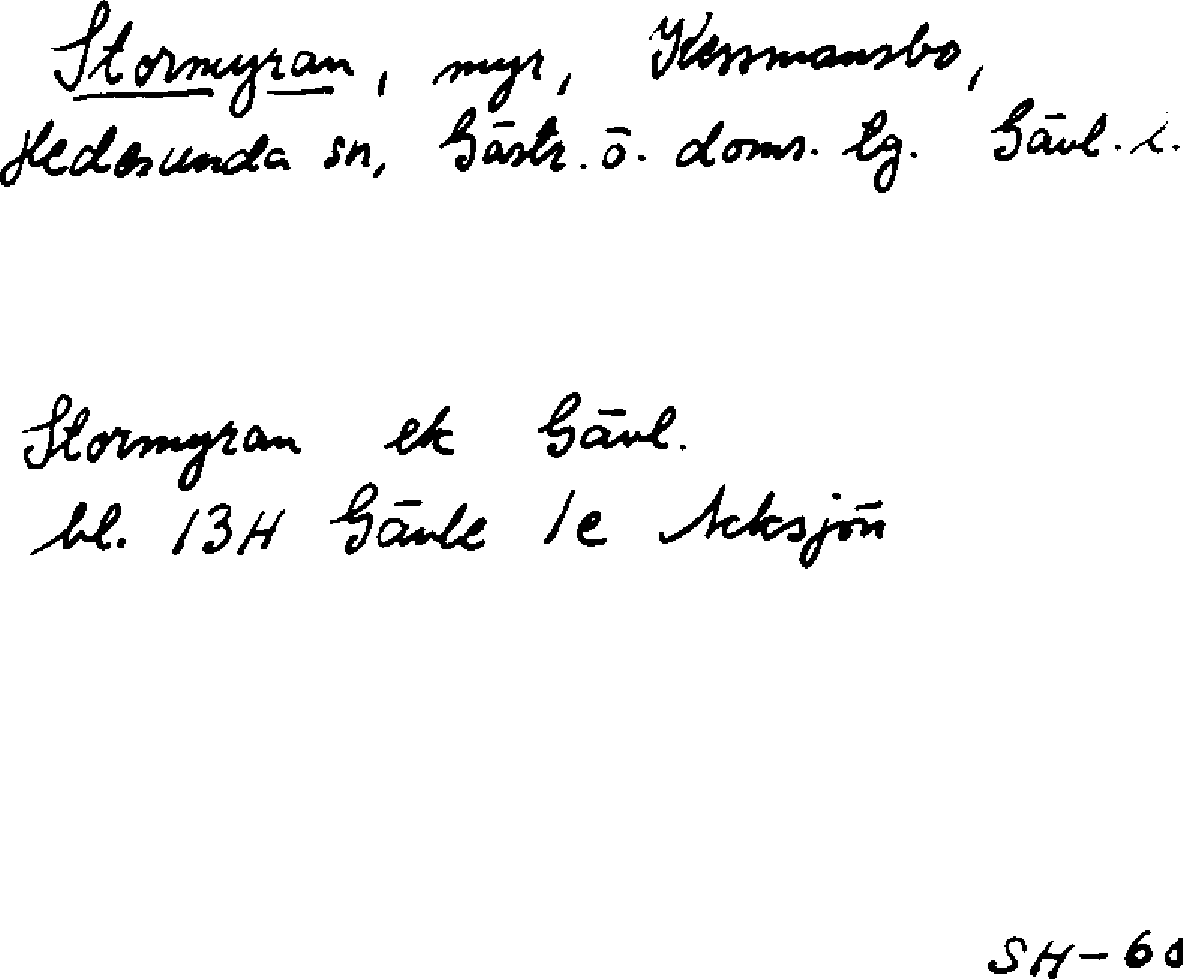 Stormyran, myr, Kessmansbo,
Hedesunda sn, Gästr. ö. doms. tg. Gävl. l.
Stormyran ek Gävl.
bl. 13H Gävle 1e Acksjön
SH-60